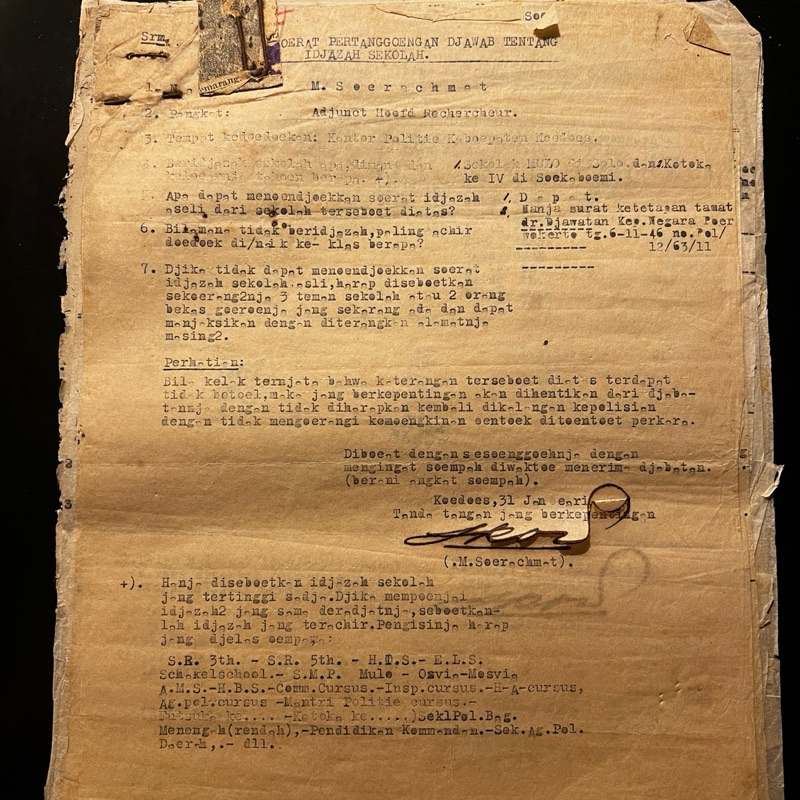 Srm.
SOERAT PERTANGGOENGAN DJAWAB TENTANG
IDJAZAH SEKOLAH.
marang.
1. M.Soerachmat
2. Pangkat: Adjunct Hoofd Rechercheur.
3. Tempat kedoedoekan: Kantor Politie Kaboepaten Koedoes.
4. Beridjazah sekolah apa, dimana dan 1.Sekolah MULO di Solo.dan 2.Kotoka
ke IV di Soekaboemi.
5. Apa dapat menoendjoekkan soerat idjazah 1. D a p a t.
aseli dari sekolah terseboet diatas? Hanja surat ketetapan tamat
dr.Djawatan Kep.Negara Poer
6. Bilamana tidak beridjazah,paling achir wokerto tg.6-11-46 no.Pol/
doedoek di/naik ke- klas berapa? 12/63/11
7. Djika tidak dapat menoendjoekkan soerat
idjazah sekolah asli,harap diseboetkan
sekoerang2nja 3 teman sekolah atau 2 orang
bekas goeroenja jang sekarang ada dan dapat
manjaksikan dengan diterangkan alamatnja
masing2.
Perhatian:
Bila kelak ternjata bahwa katerangan terseboet diatas terdapat
tidak betoel,maka jang berkepentingan akan dihentikan dari djaba-
tannja dengan tidak diharapkan kembali dikalangan kepolisian
dengan tidak mengoerangi kemoengkinan oentoek ditoentoet perkara.
Diboeat dengan sesoenggoehnja dengan
mengingat soempah diwaktoe menerima djabatan.
(berani angkat soempah).
Koedoes,31 Jan eari
Tanda tangan jang berkepentingan
(.M.Soerachmat).
+). Hanja diseboetkan idjazah sekolah
jang tertinggi sadja.Djika mempoenjai
idjazah2 jang sama deradjatnja,seboetkan-
lah idjazah jang terachir.Pengisinja harap
jang djelas oempama:
S.R. 3th. - S.R. 5th. - H.I.S.- E.L.S.
Schakelschool.- S.M.P. Mulo - Osvia-Mosvia
A.M.S.-H.B.S.-Comm.Cursus.-Insp.cursus.-H-A-cursus,
Ag.pol.cursus -Mantri Politie cursus.-
Futsuka ke.... -Kotoka ke.....)SeklPol.Bag.
Menengah(rendah),-Pendidikan Kommandan.-Sek.Ag.Pol.
Daerah,.- dll.